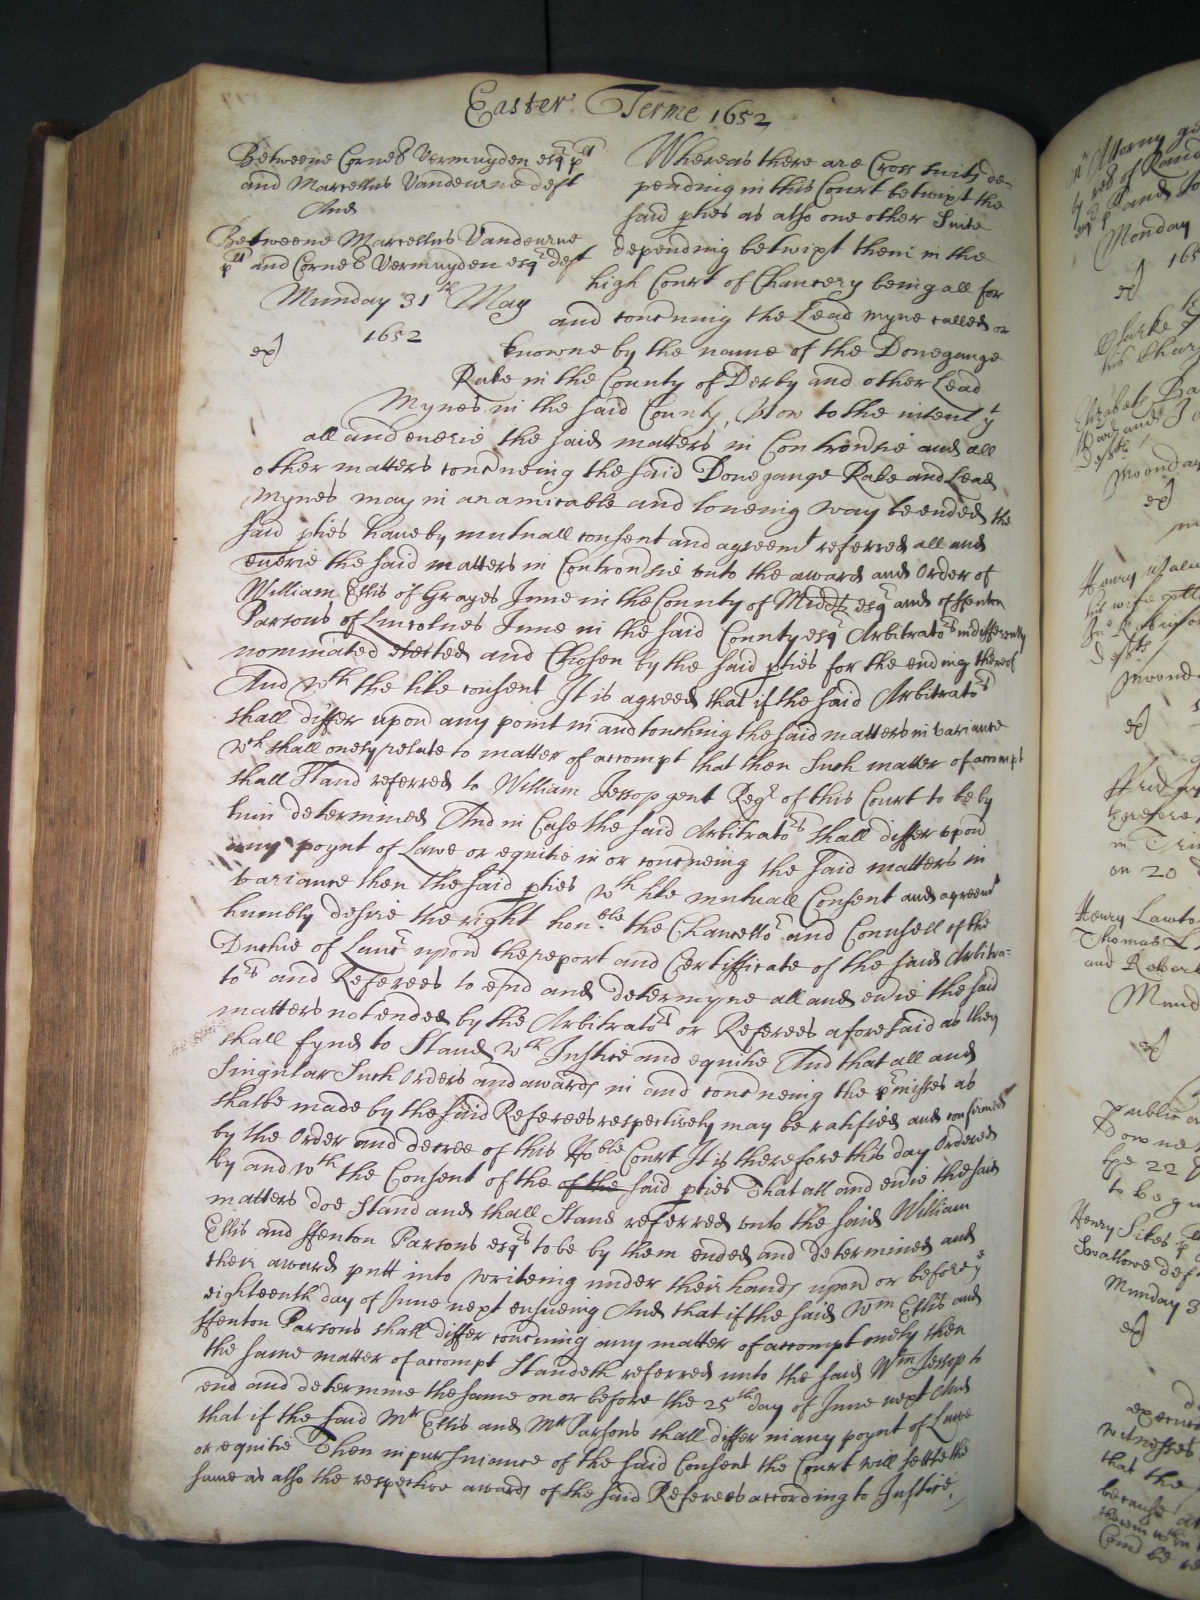 Easter Terme 1652
Betweene Cornes Vermuyden esqr plt
and Marcellus Vandeurne deft
And
Betweene Marcellus Vandeurne
plt and Cornes Vermuyden esqr deft
Munday 31th May
1652
ex)
Whereas there are Cross suits de-
pending in this Court betwixt the
said pties as also one other Suite
depending betwixt them in the
high Court of Chancery being all for
and concning the Lead myne called or
knowne by the name of the Donegange
Rake in the County of Derby and other Lead
Mynes in the said County, Now to the intent yt
all and euerie the said matters in Controusie and all
other matters concneing the said Donegange Rake and Lead
Mynes may in an amicable and loueing way be ended the
said pties haue by mutuall consent and agreemt referred all and
euerie the said matters in Controusie vnto the award and Order of
William Ellis of Grayes Inne in the County of Midds esqr and of ffenton
Parsons of Lincolnes Inne in the said County esqr Arbitrators indifferently
nominated elected and Chosen by the said pties for the ending thereof
And wth the like consent It is agreed that if the said Arbitrators
shall differ upon any point in and touching the said matters in variance
wch shall onely relate to matter of accompt that then Such matter of accompt
shall Stand referred to William Jessop gent Regr of this Court to be by
him determined And in Case the said Arbitrators shall differ vpon
any poynt of Lawe or equitie in or concneing the said matters in
variance then the said pties wth like mutuall Consent and agreemt
humbly desire the right honble the Chancellor and Counsell of the
Duchie of Lancr upon the report and Certifficate of the said Arbitra-
tors and Referees to end and determyne all and euie the said
matters not ended by the Arbitrators or Referees aforesaid as they
shall fynd to Stand wth Justice and equitie And that all and
Singular Such Orders and awards in and concneing the pmisses as
shalbe made by the said Referees respectively may be ratified and confirmed
by the Order and decree of this Hoble Court It is therefore this day Ordered
by and wth the Consent of the of the said pties That all and euie the said
matters doe Stand and shall Stand referred vnto the said William
Ellis and ffenton Parsons esqrs to be by them ended and determined and
their award putt into writeing under their hands upon or before ye
eighteenth day of June next ensueing And that if the said Wm Ellis and
ffenton Parsons shall differ concning any matter of accompt onely then
the same matter of accompt Standeth referred unto the said Wm Jessop to
end and determine the same on or before the 25th day of June next And
that if the said Mr Ellis and Mr Parsons shall differ in any poynt of Lawe
or equitie Then in pursuance of the said Consent the Court will settle the
same as also the respective awards of the said Referees according to Justice.
Monday
ex)
his
Monday
ex)
Henry
his wife
ex)
on 20
Henry Lawto
Thomas L
and Robert
Mund
ex)
public
the 22
to be
Henry Sikes
Swallowe def
Munday 3
ex)
witnesses
that the
because